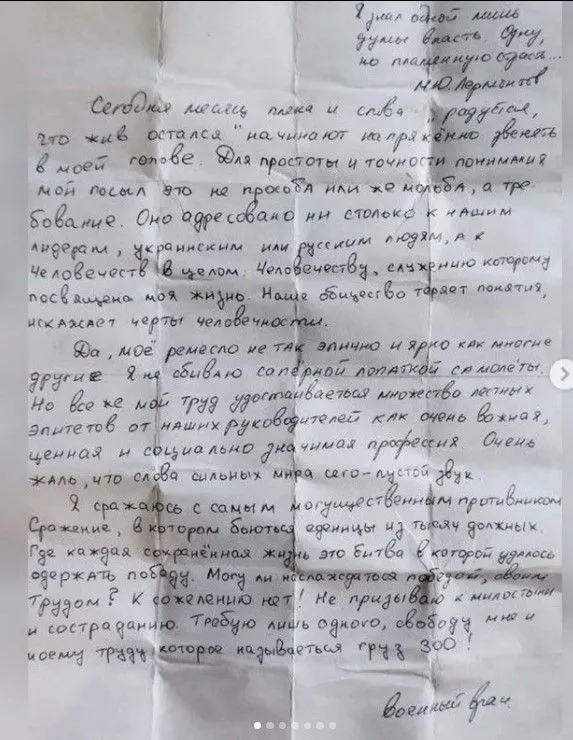 Я знал одной лишь
думы власть. Одну,
но пламенную страсть...
М.Ю. Лермонтов
Сегодня месяц плена и слова „радуйся,
что жив остался" начинают напряжённо звенеть
в моей голове. Для простоты и точности понимания
мой посыл это не просьба или же мольба, а тре-
бование. Оно адресовано ни столько к нашим
лидерам, украинским или русским людям, а к
Человечеств в целом. Человечеству, служению которому
посвящена моя жизнь. Наше общество теряет понятия,
искажает черты человечности.
Да, моё ремесло не так эпично и ярко как многие
другие Я не сбиваю сапёрной лопаткой самолёты.
Но все же мой труд удостаиваеться множества лестных
эпитетов от наших руководителей как очень важная,
ценная и социально значимая профессия. Очень
жаль, что слова сильных мира сего-пустой звук.
Я сражаюсь с самым могущественным противником
Сражение, в котором бьються еденицы из тысяч должных.
Где каждая сохранённая жизнь это битва в которой удалось
одержать победу. Могу ли наслаждаться победой, своим
трудом? К сожелению нет! Не призываю к милостыни
и состраданию. Требую лишь одного, свободу мне и
моему труду которое называеться груз 300!
Военный врач.